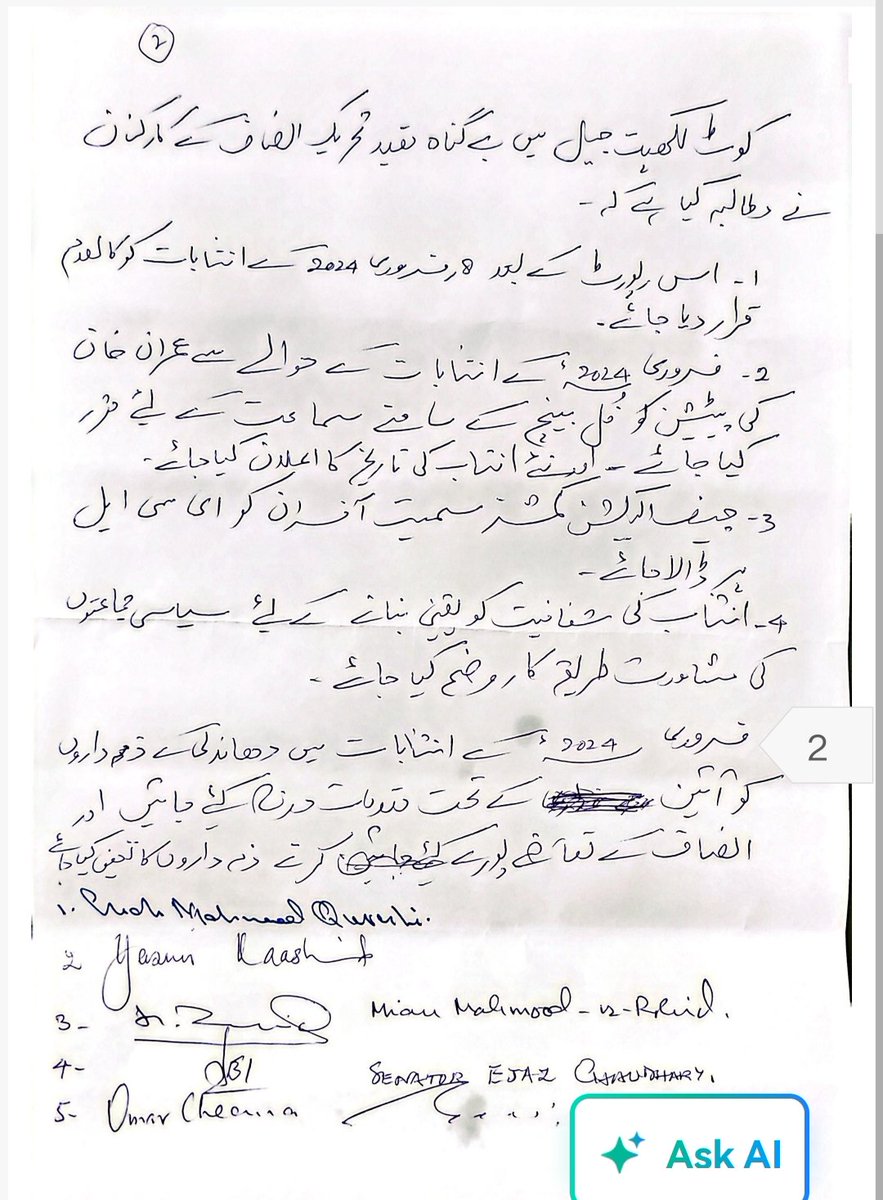 2
کوٹ لکھپت جیل میں بے گناہ قید تحریک انصاف کے کارکنان
نے مطالبہ کیا ہے کہ۔
1۔ اس رپورٹ کے بعد 8 فروری 2024 کے انتخابات کو کالعدم
قرار دیا جائے۔
2۔ فروری 2024ء کے انتخابات کے حوالے سے عمران خان
کی پٹیشن کو فل بینچ کے سامنے سماعت کے لئے مقرر
کیا جائے۔ اور نئے انتخاب کی تاریخ کا اعلان کیا جائے۔
3۔ چیف الیکشن کمشنر سمیت آفسران کو ای سی ایل
پر ڈالا جائے۔
4۔ انتخاب کی شفافیت کو یقینی بنانے کے لیئے سیاسی جماعتوں
کی مشاورت طریقہ کار وضع کیا جائے۔
فروری 2024ء کے انتخابات میں دھاندلی کے ذمہ داروں
2
کو آئین کے تحت مقدمات درج کئے جائیں اور
انصاف کے تقاضے پورے کرتے ذمہ داروں کا تعین کیا جائے
1. Shah Mahmood Qureshi.
2 Yasmin Raashid
3- Mian Mahmood-ur-Rashid.
4- SENATOR EJAZ CHAUDHARY.
5- Omar Cheema
Ask AI